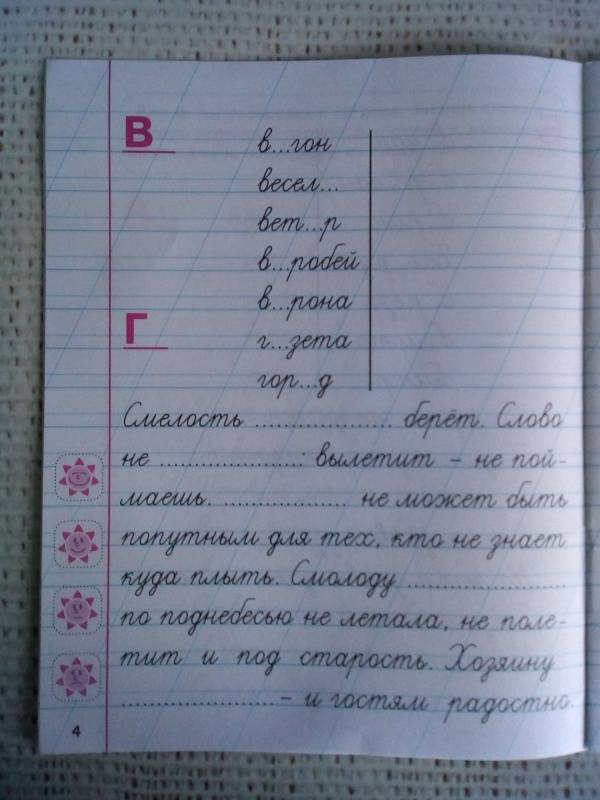 В
в...гон
весел...
вет...р
в...робей
в...рона
Г
г...зета
гор...д
Смелость .................... берёт. Слово
не ....................: вылетит – не пой-
маешь. .................. не может быть
попутным для тех, кто не знает
куда плыть. Смолоду ......................
по поднебесью не летала, не поле-
тит и под старость. Хозяину
...................... – и гостям радостно.
4